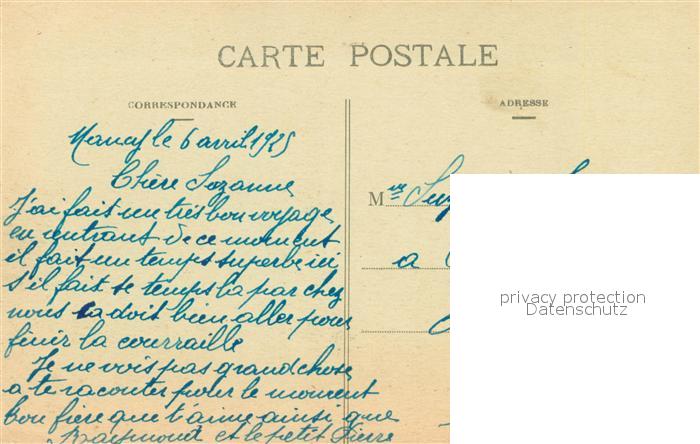 CARTE POSTALE
CORRESPONDANCE
ADRESSE
Nancy le 6 avril 1925
Chère Suzanne
J'ai fait un très bon voyage
en rentrant de ce moment
il fait un temps superbe ici
s'il fait se temps la par chez
nous sa doit bien aller pour
finir la courraille
Je ne vois pas grand chose
a te raconter pour le moment
bon frère que t'aime ainsi que
Raymond et le petit Pierre
Mlle Suz
a
privacy protection
Datenschutz